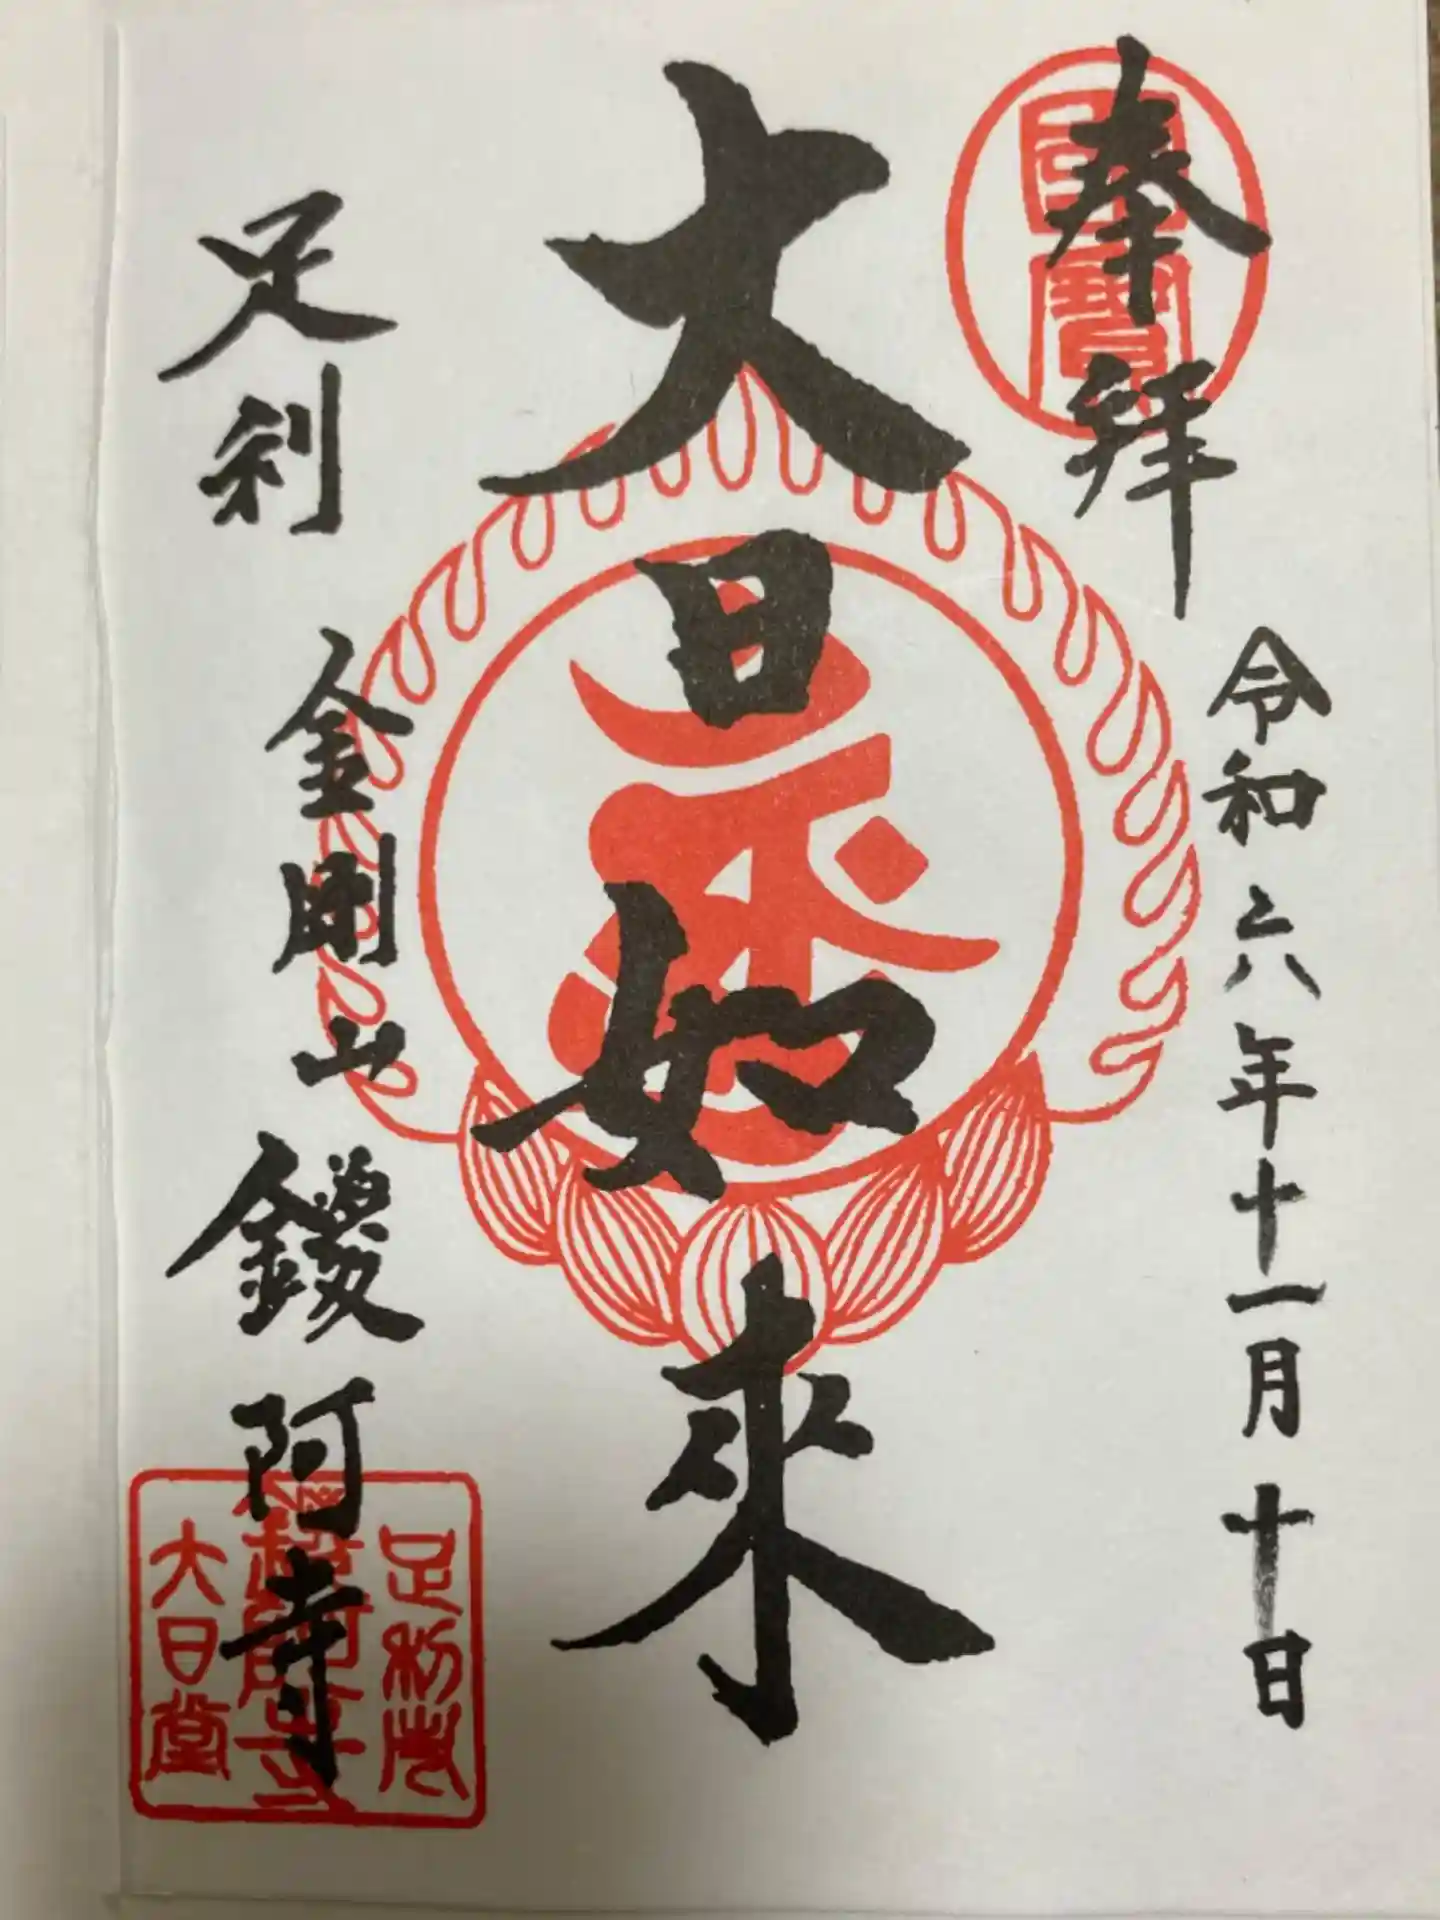 奉拝
令和六年十一月十日
國寶
大日如來
足利
金剛山
鑁阿寺
足利庄
鑁阿寺
大日堂